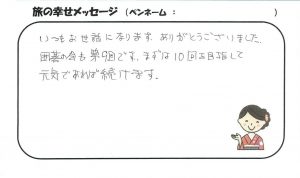 旅の幸せメッセージ (ペンネーム : )
いつもお世話になります。ありがとうございました。
囲碁の会も第9回です。まずは10回を目指して
元気であれば続けます。